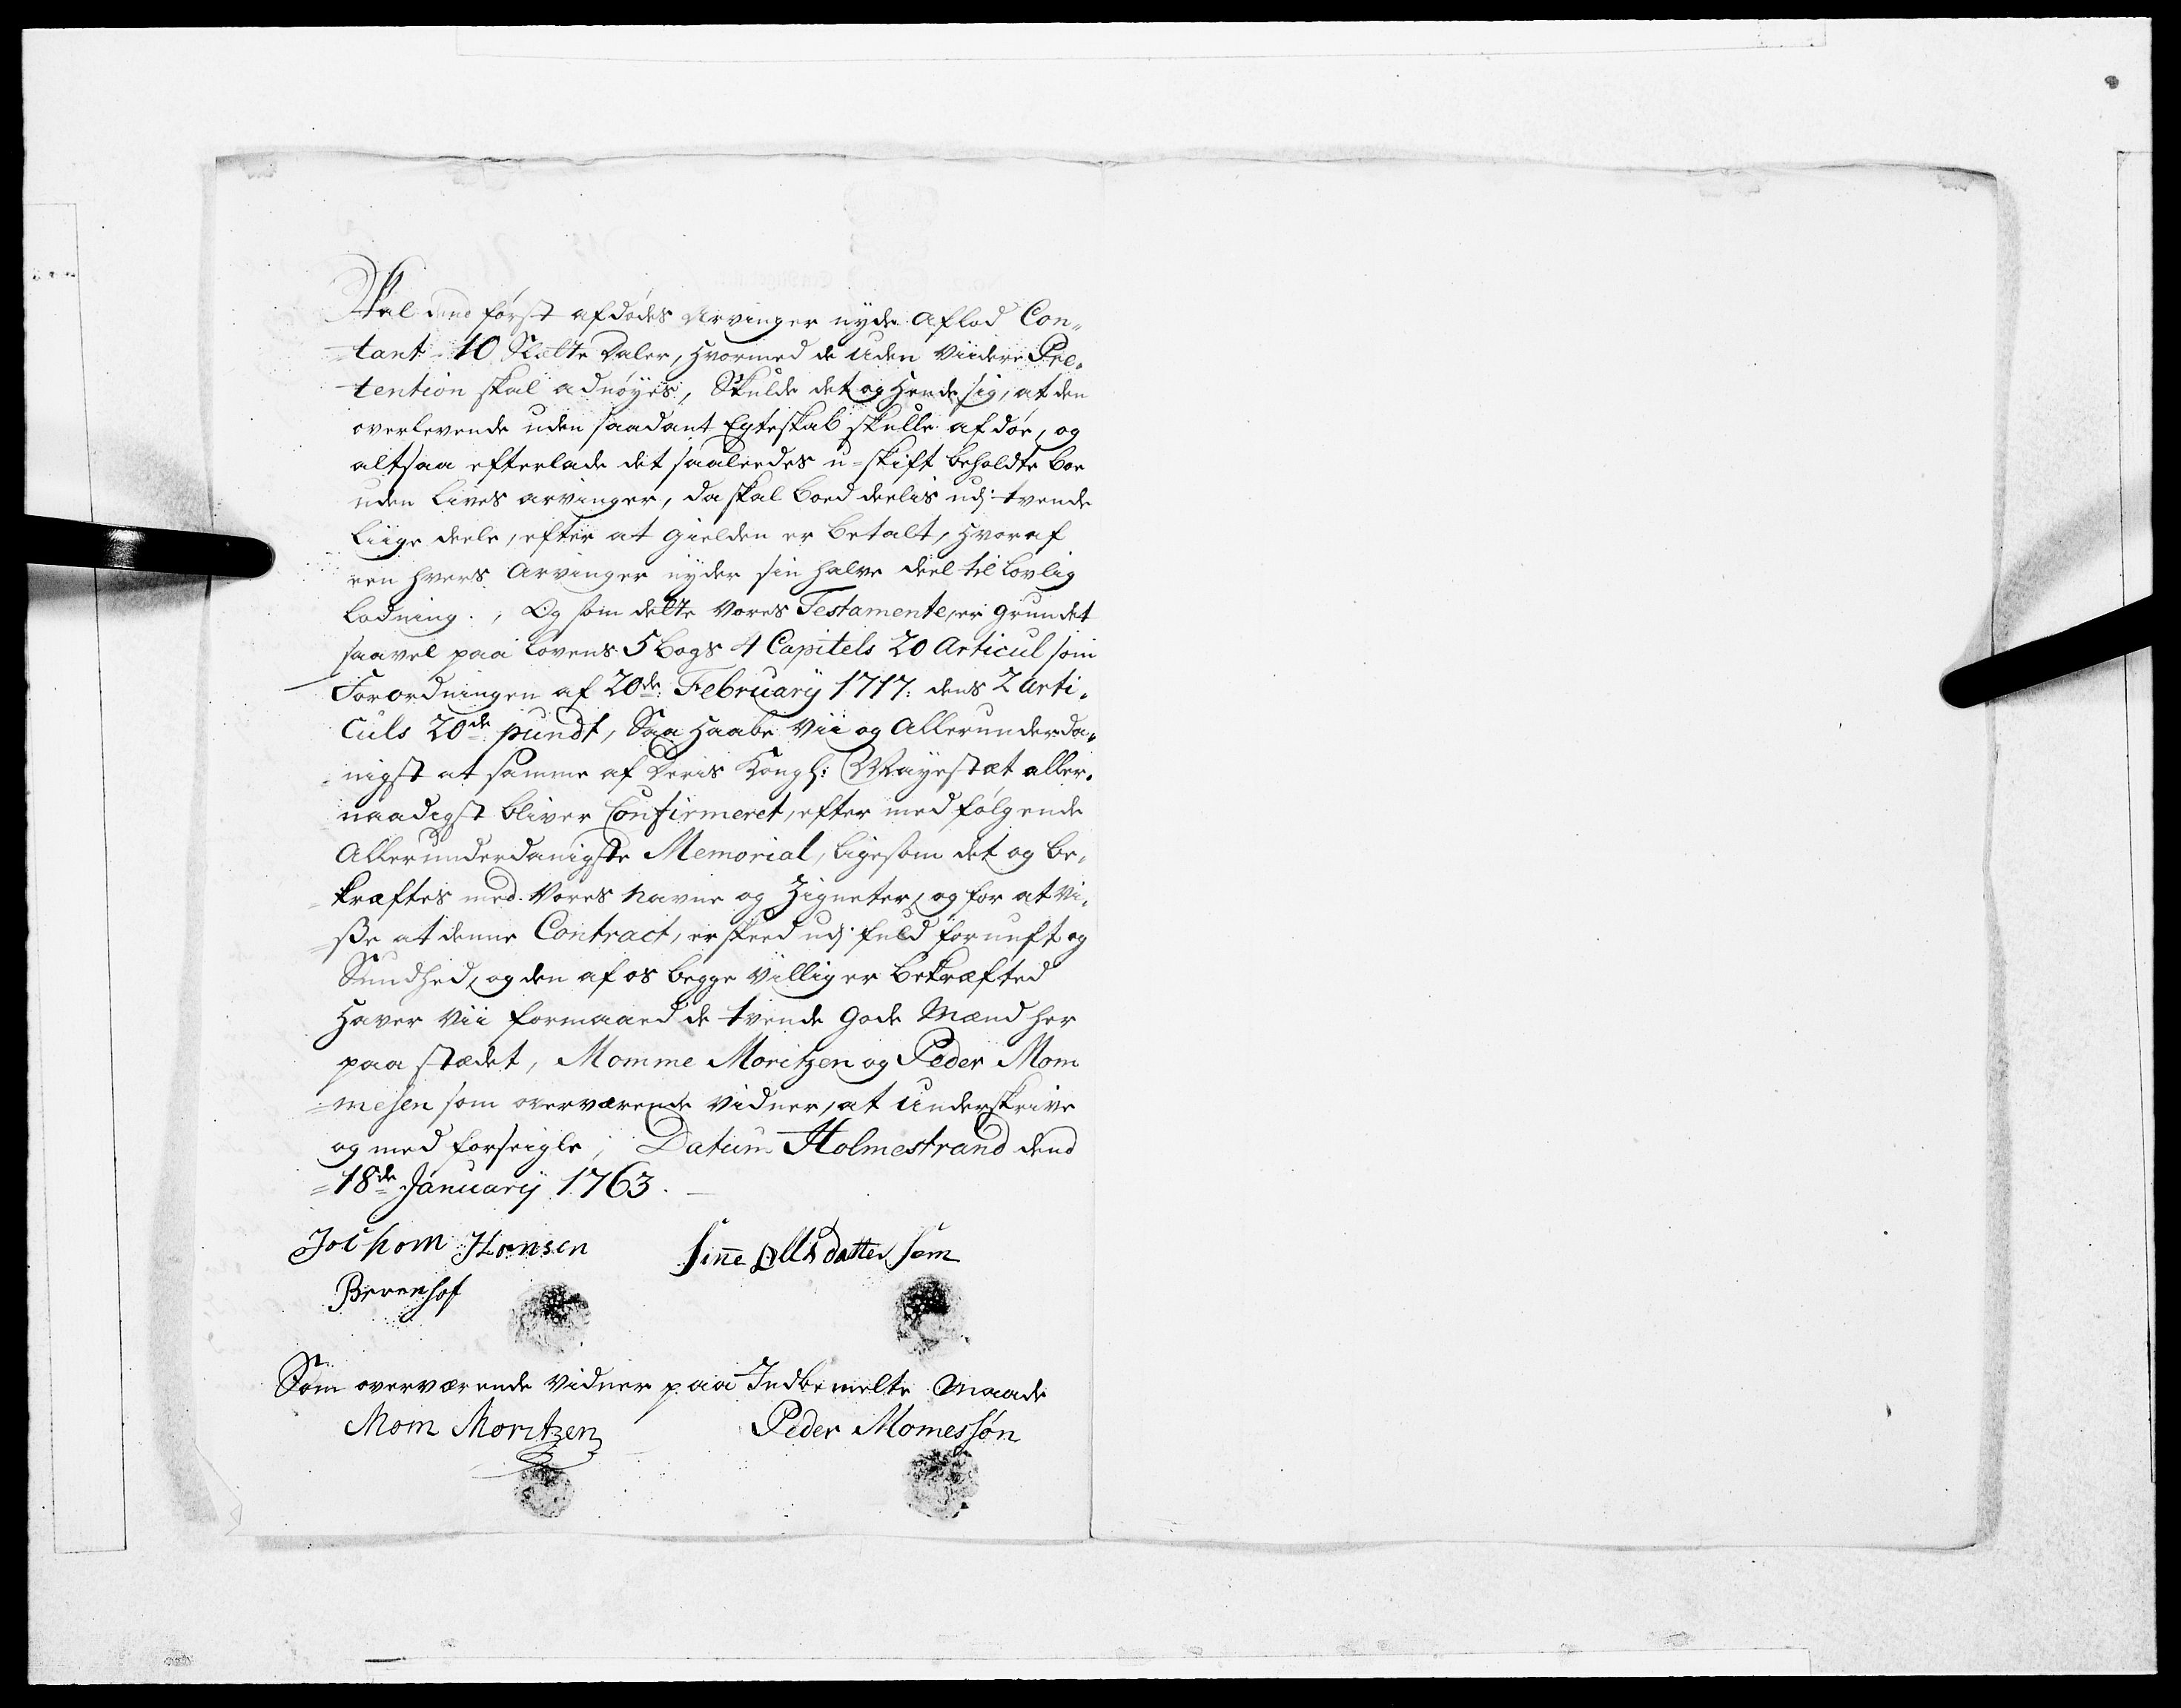 Skal dend først afdødes Arvinger nyde Aflod Con„
tant 10 Slette daler, hvormed de uden viidere Præ„
tention skal adnøyes, Skulde det og hende sig, at den
overlevende uden saadant Egteskab skulle afdøe, og
altsaa efterlade det saaleedes u-skift beholdte boe
uden Livs arvinger, da skal boed deelis udj tvende
Liige deele, efter at gielden er betalt, hvoraf
een hvers Arvinger nyder sin halve deel til lovlig
lodning. , Og som dette vores Testamente, er grundet
saavel paa Lovens 5 bogs 4 Capitels 20 Articul som
Forordningen af 20de: February 1717: dens 2 arti„
culs 20de pundt, Saa haabe vii og Allerunderda„
nigst at samme af deris Kongl: Mayestæt aller„
naadigst bliver Confirmeret, efter med følgende
Allerunderdanigste Memorial, ligesom det og be„
kræftes med vores navne og Zigneter, og for at vi„
ße at denne Contract, er skeed udj fuld fornuft og
Sundhed, og den af os begge villig er bekræfted
haver vii formaaed de tvende gode Mænd her
paa stædet, Momme Moritzen og Peder Mom
=mesen som overværende vidner, at underskrive
og med forseigle; Datum Holmestrand dend
=18de January 1763.
Jochom Hansen Sine Ollsdatter som
Berenhof
Som overværende vidner paa Indbemelte Maade
Mom Moritzen Peder Momessøn